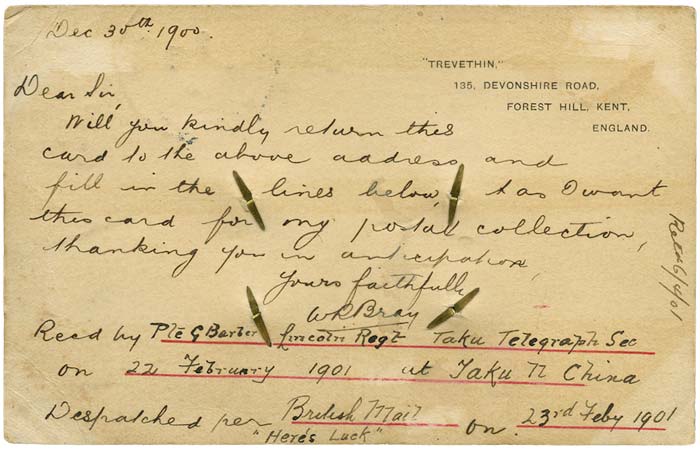 Dec 30th 1900.
"TREVETHIN,"
135, DEVONSHIRE ROAD,
FOREST HILL, KENT,
ENGLAND.
Dear Sir,
Will you kindly return this
card to the above address and
fill in the lines below, as I want
this card for my postal collection,
thanking you in anticipation,
Yours faithfully
W R Bray
Recd by Pte G Barber Lincoln Regt Taku Telegraph Sec
on 22 February 1901 at Taku N China
Despatched per British Mail on 23rd Feby 1901
"Here's Luck"
Retd 6/4/01